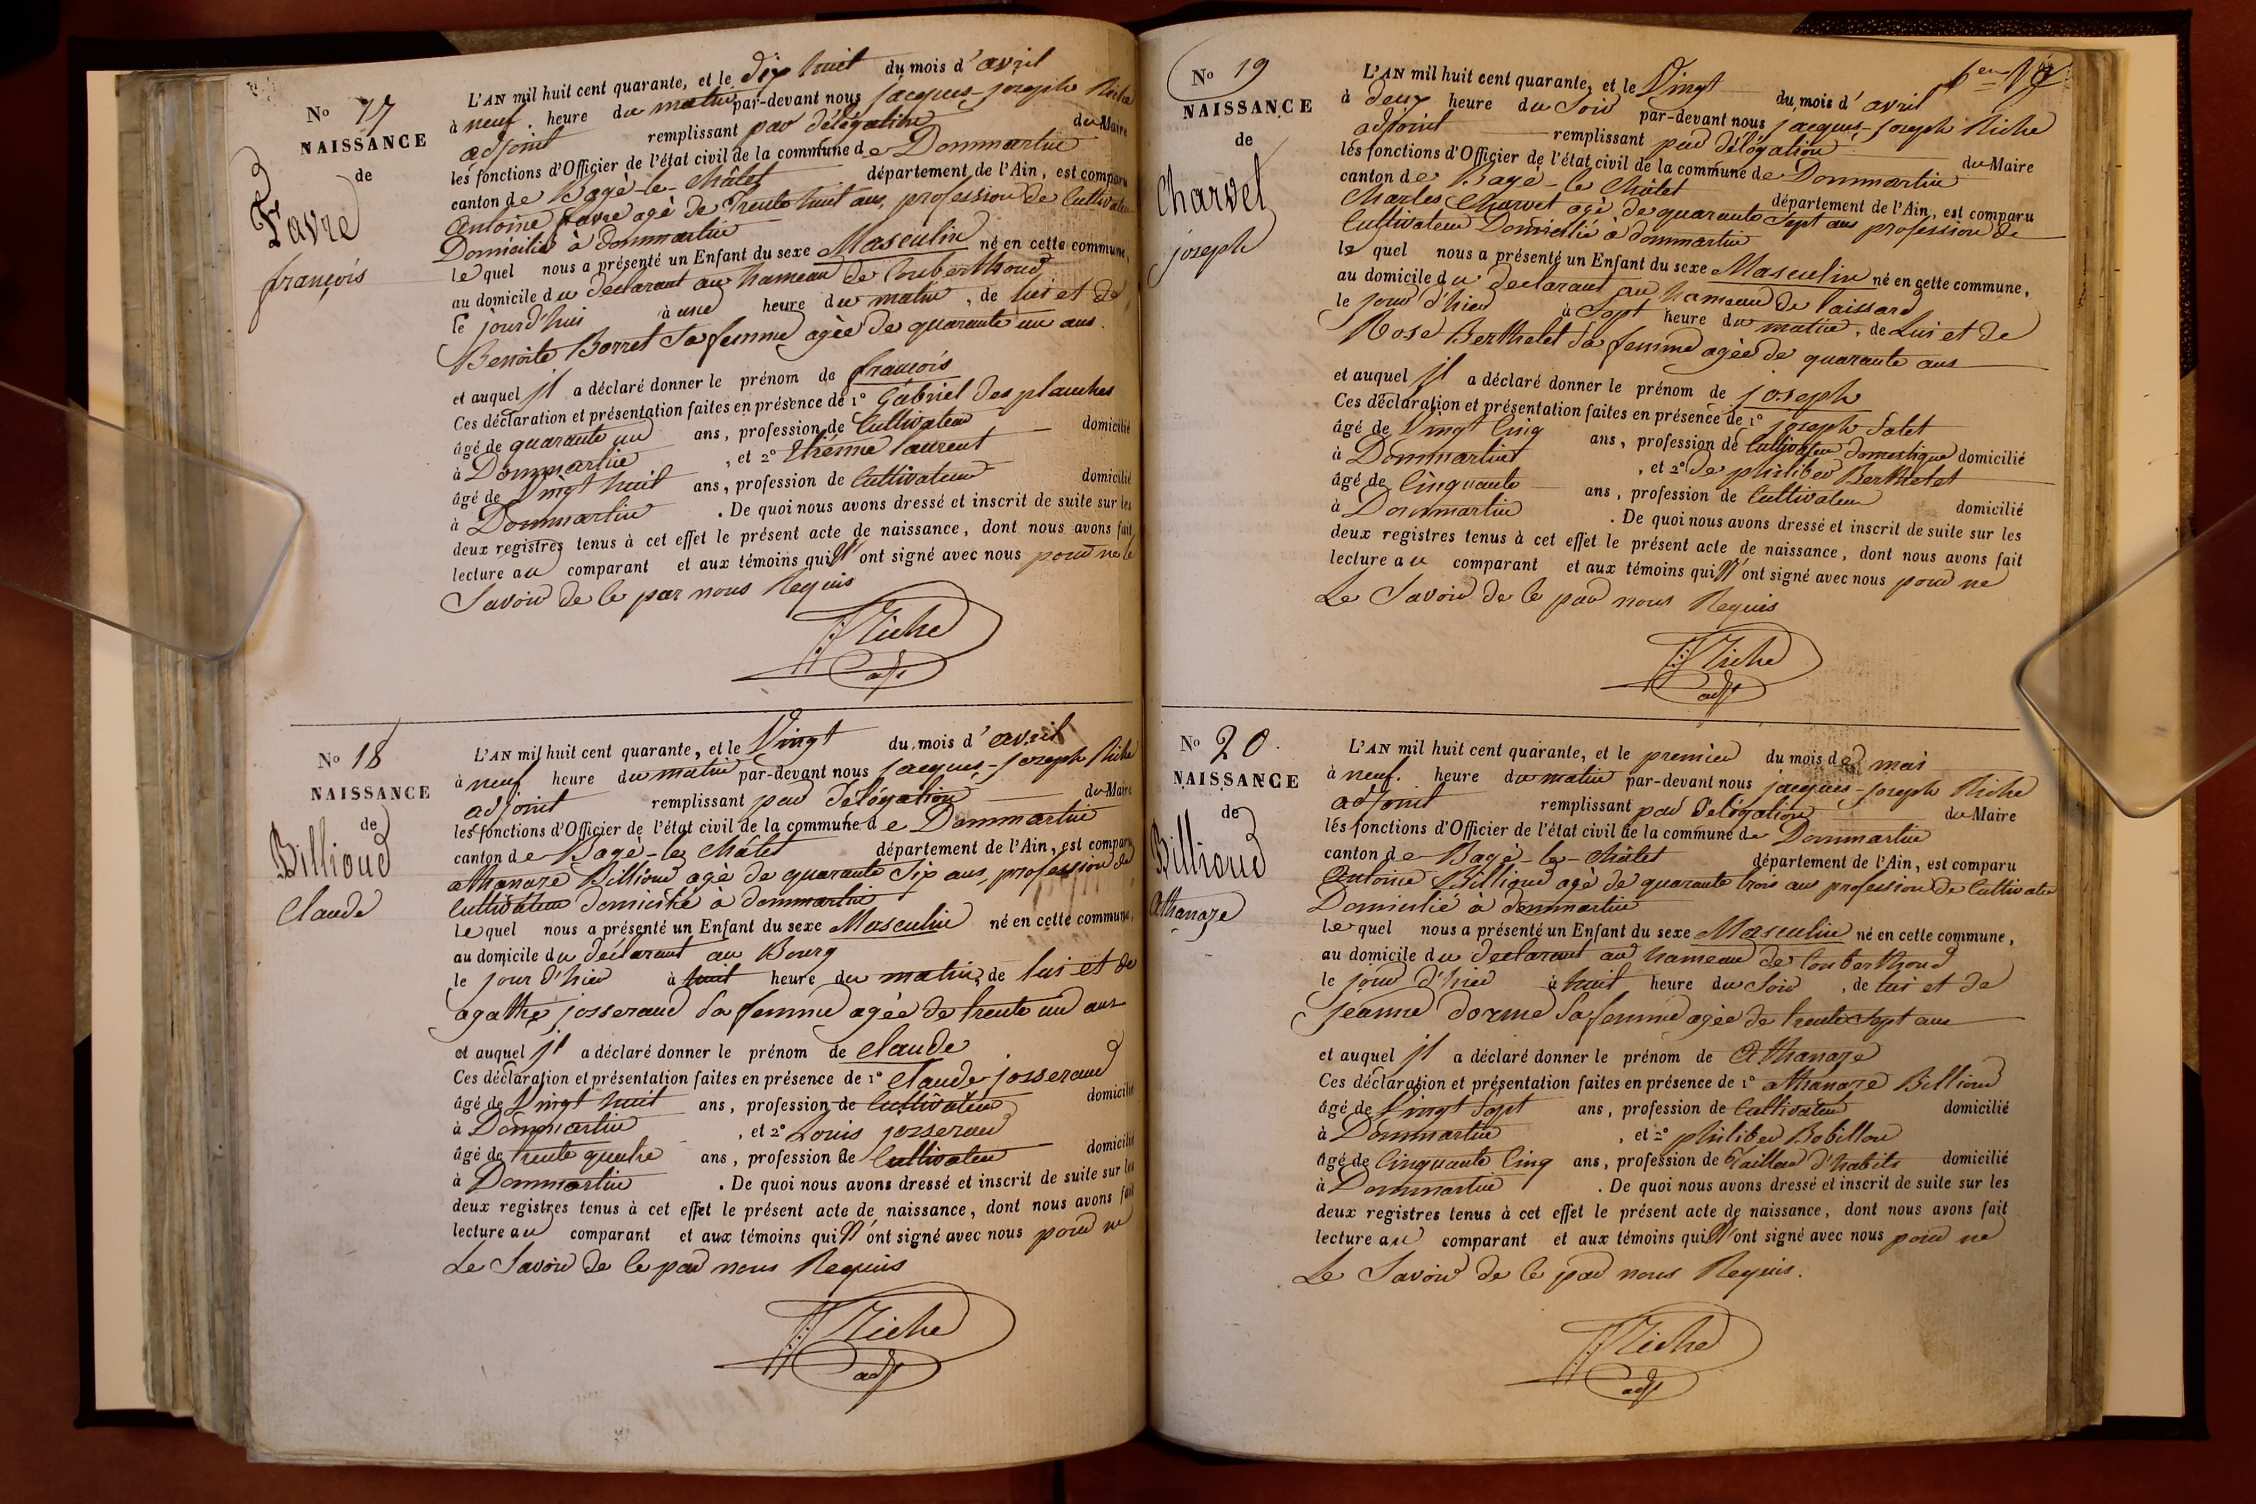 No 17
NAISSANCE
de
Favre
françois
L'AN mil huit cent quarante, et le dix huit du mois d'avril
à neuf heure du matin par-devant nous jacques-joseph Riche
adjoint remplissant par délégation du Maire
les fonctions d'Officier de l'état civil de la commune de Dommartin
canton de Bagé-le-Châtel département de l'Ain, est comparu
Antoine favre agé de trente huit ans, profession de Cultivateur
Domicilié à dommartin
le quel nous a présenté un Enfant du sexe Masculin né en cette commune,
au domicile du déclarant au hameau de louberthoud
le jourd'hui à une heure du matin, de lui et de
Benoite Borret Sa femme agée de quarante un ans.
et auquel jl a déclaré donner le prénom de françois
Ces déclaration et présentation faites en présence de 1° Gabriel Desplanches
âgé de quarante un ans, profession de Cultivateur domicilié
à Dommartin, et 2° Etienne laurent
âgé de Vingt huit ans, profession de Cultivateur domicilié
à Dommartin. De quoi nous avons dressé et inscrit de suite sur les
deux registres tenus à cet effet le présent acte de naissance, dont nous avons fait
lecture au comparant et aux témoins qui N'ont signé avec nous pour ne le
Savoir de ce par nous Requis
Riche
adj
No 18
NAISSANCE
de
Billioud
Claude
L'AN mil huit cent quarante, et le Vingt du mois d'avril
à neuf heure du matin par-devant nous jacques-joseph Riche
adjoint remplissant par délégation du Maire
les fonctions d'Officier de l'état civil de la commune de Dommartin
canton de Bagé-le-Châtel département de l'Ain, est comparu
athanaze Billioud agé de quarante Six ans, profession de
Cultivateur domicilié à dommartin
le quel nous a présenté un Enfant du sexe Masculin né en cette commune,
au domicile du déclarant au Bourg
le jour d'hier à huit heure du matin, de lui et de
agathe josserand Sa femme agée de trente un ans
et auquel jl a déclaré donner le prénom de Claude
Ces déclaration et présentation faites en présence de 1° Claude josserand
âgé de Vingt huit ans, profession de Cultivateur domicilié
à Dommartin, et 2° Louis josserand
âgé de trente quatre ans, profession de Cultivateur domicilié
à Dommartin. De quoi nous avons dressé et inscrit de suite sur les
deux registres tenus à cet effet le présent acte de naissance, dont nous avons fait
lecture au comparant et aux témoins qui N'ont signé avec nous pour ne
Le Savoir de ce par nous Requis
Riche
adj
No 19
NAISSANCE
de
Charvet
joseph
L'AN mil huit cent quarante, et le Vingt du mois d'avril
à deux heure du Soir par-devant nous jacques-joseph Riche
adjoint remplissant par délégation du Maire
les fonctions d'Officier de l'état civil de la commune de Dommartin
canton de Bagé-le Châtel département de l'Ain, est comparu
Charles Charvet agé de quarante Sept ans profession de
Cultivateur Domicilié à dommartin
le quel nous a présenté un Enfant du sexe Masculin né en cette commune,
au domicile du déclarant au hameau de laissard
le jour d'hier à Sept heure du matin, de Lui et de
Rose Berthelet Sa femme agée de quarante ans
et auquel jl a déclaré donner le prénom de joseph
Ces déclaration et présentation faites en présence de 1° joseph Salet
âgé de Vingt Cinq ans, profession de Cultivateur domestique domicilié
à Dommartin, et 2° de philiber Berthelet
âgé de Cinquante ans, profession de Cultivateur domicilié
à Dommartin. De quoi nous avons dressé et inscrit de suite sur les
deux registres tenus à cet effet le présent acte de naissance, dont nous avons fait
lecture au comparant et aux témoins qui N'ont signé avec nous pour ne
Le Savoir de ce par nous Requis
Riche
adj
No 20.
NAISSANCE
de
Billioud
Athanaze
L'AN mil huit cent quarante, et le premier du mois de mai
à neuf. heure du matin par-devant nous jacques-joseph Riche
adjoint remplissant par délégation du Maire
les fonctions d'Officier de l'état civil de la commune de Dommartin
canton de Bagé-le-Châtel département de l'Ain, est comparu
Antoine Billioud agé de quarante trois ans profession de Cultivateur
Domicilié à dommartin
le quel nous a présenté un Enfant du sexe Masculin né en cette commune,
au domicile du déclarant au hameau de louberthoud
le jour d'hier à huit heure du Soir, de lui et de
jeanne dorme Sa femme agée de trente Sept ans
et auquel jl a déclaré donner le prénom de Athanaze
Ces déclaration et présentation faites en présence de 1° athanaze Billioud
âgé de Vingt Sept ans, profession de Cultivateur domicilié
à Dommartin, et 2° philiber Bobillon
âgé de Cinquante Cinq ans, profession de Tailleur d'habits domicilié
à Dommartin. De quoi nous avons dressé et inscrit de suite sur les
deux registres tenus à cet effet le présent acte de naissance, dont nous avons fait
lecture au comparant et aux témoins qui N'ont signé avec nous pour ne
Le Savoir de ce par nous Requis.
Riche
adj